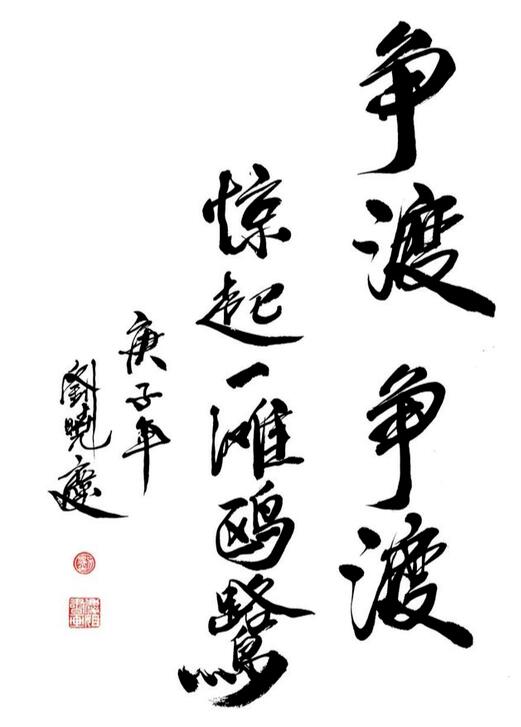 争渡争渡
惊起一滩鸥鹭
庚子年
劉晓慶